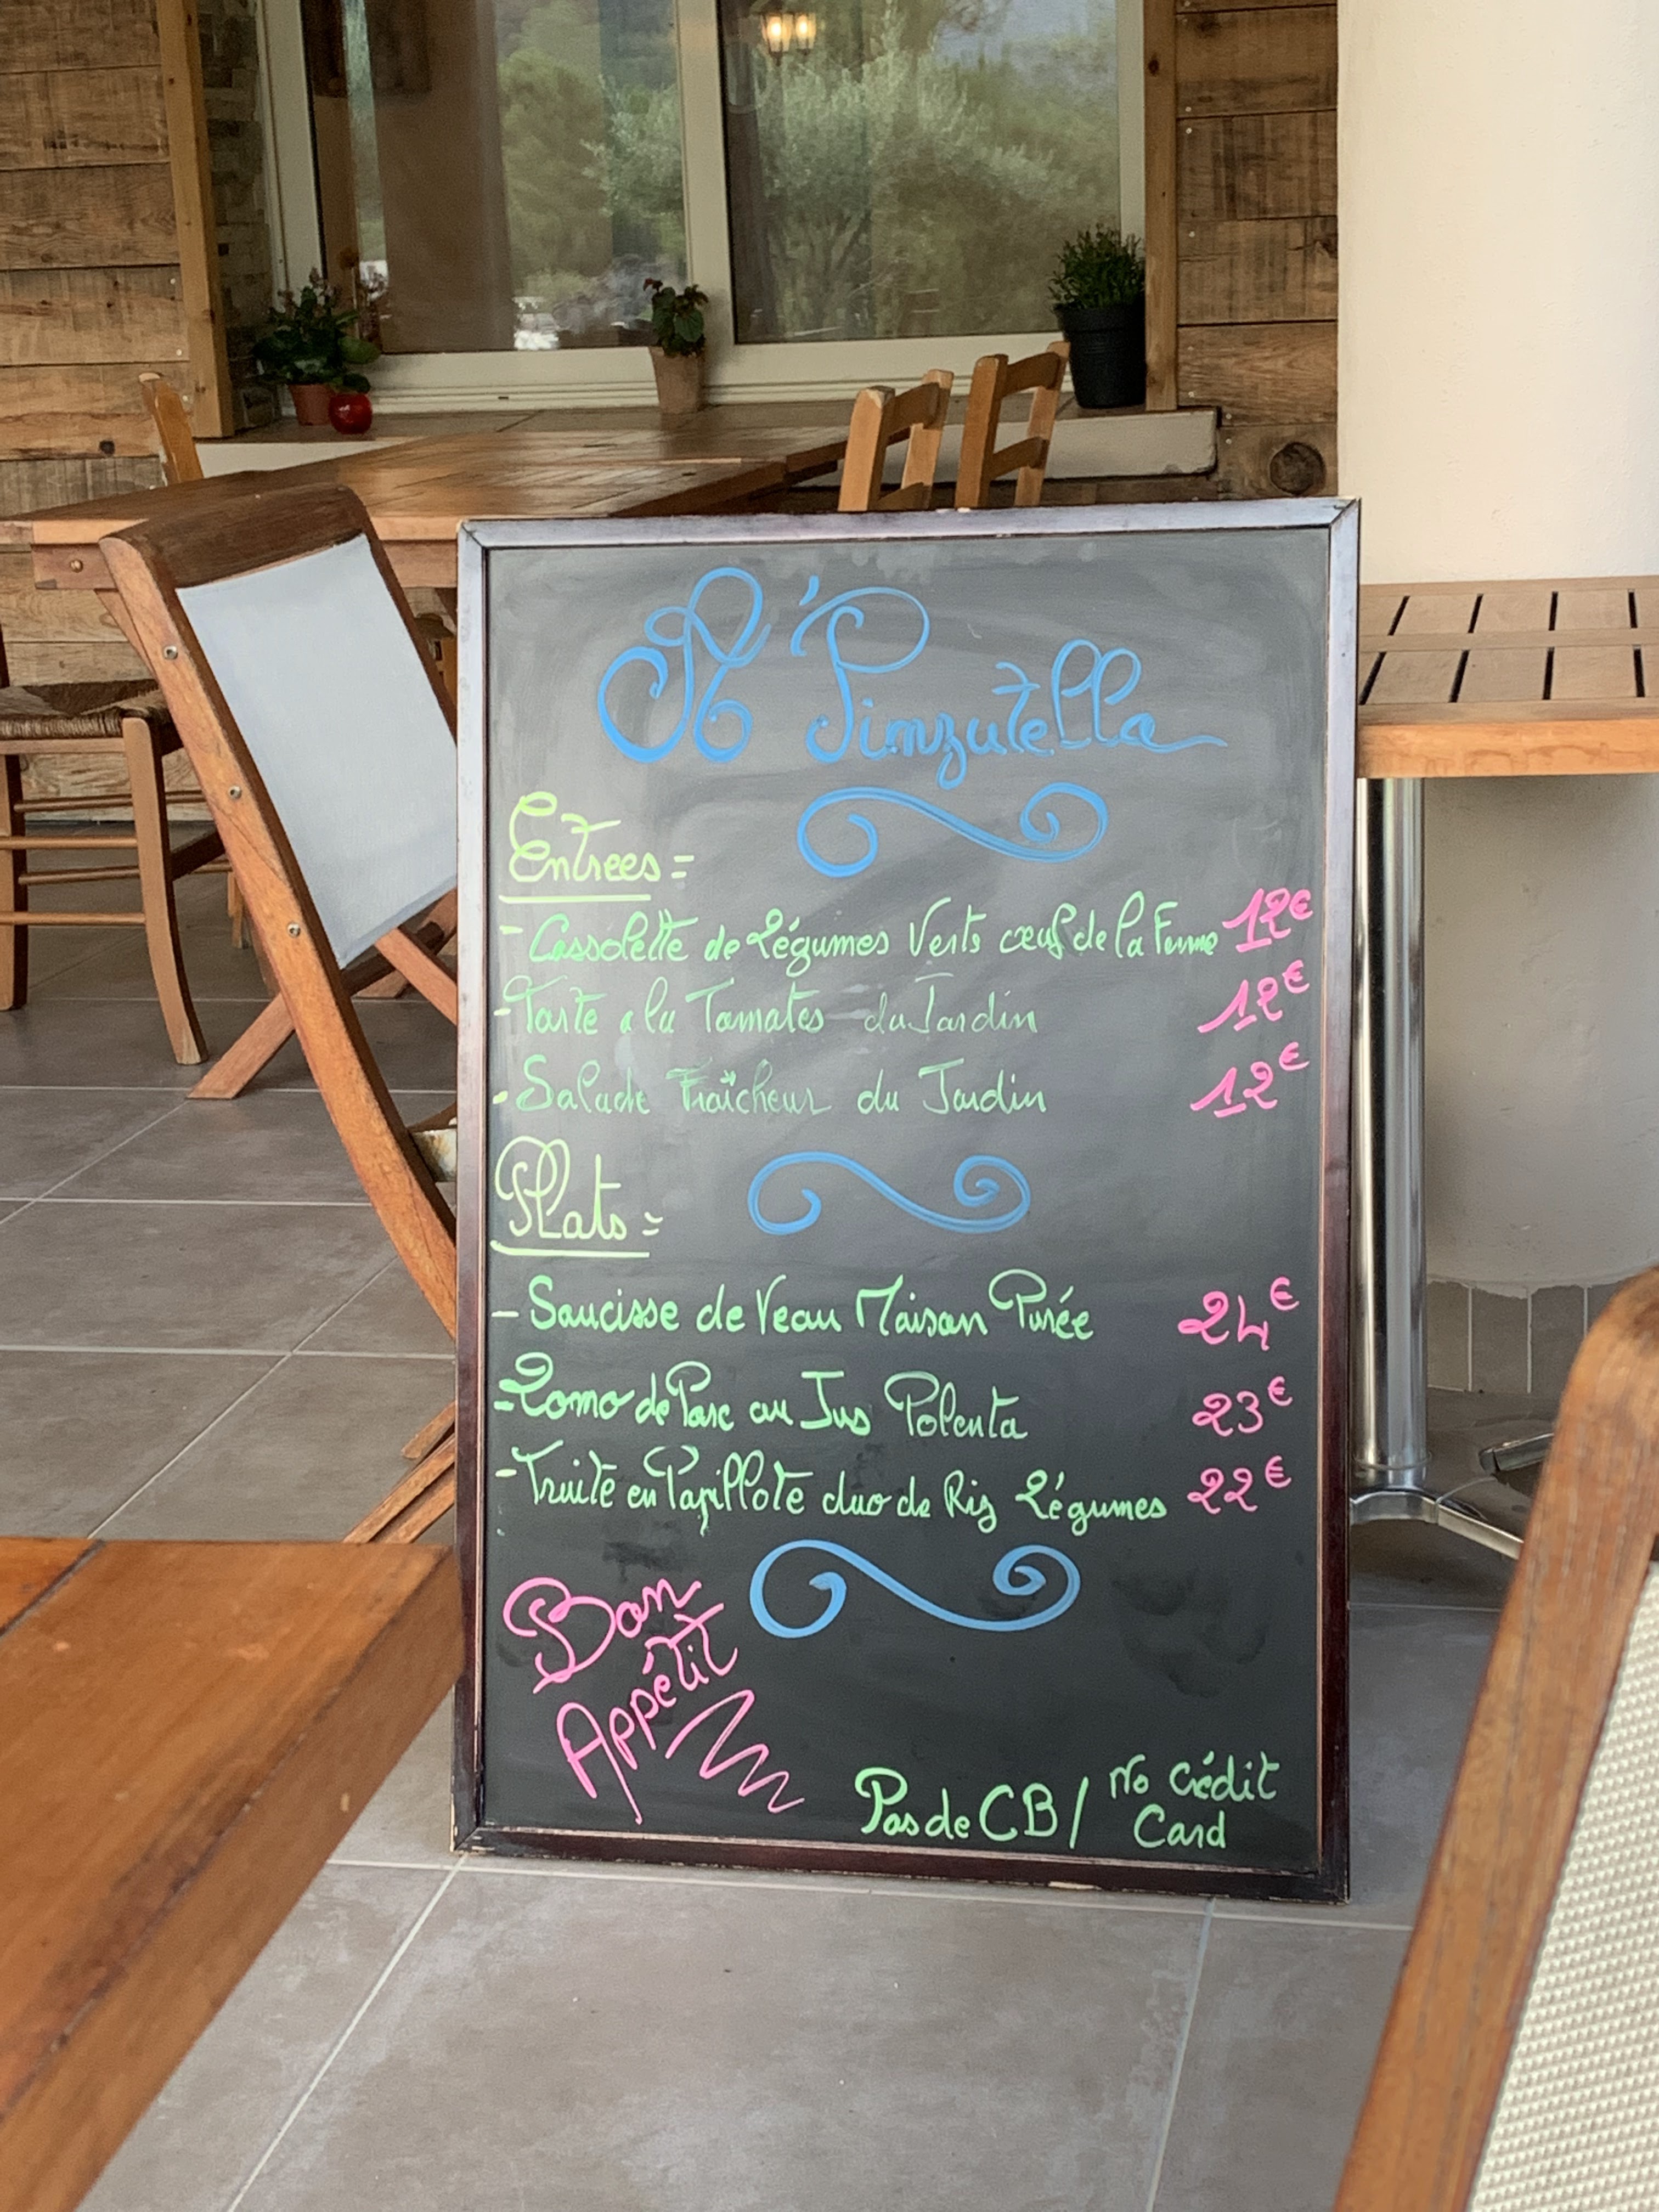 A Pinzutella
Entrees =
- Cassolette de Légumes Verts œuf de la Ferme 12€
- Tarte a la Tomates du Jardin 12€
- Salade Fraîcheur du Jardin 12€
Plats =
- Saucisse de Veau Maison Purée 24€
- Lomo de Porc au Jus Polenta 23€
- Truite en Papillote duo de Riz Légumes 22€
Bon
Appétit
Pas de CB / No Crédit
Card